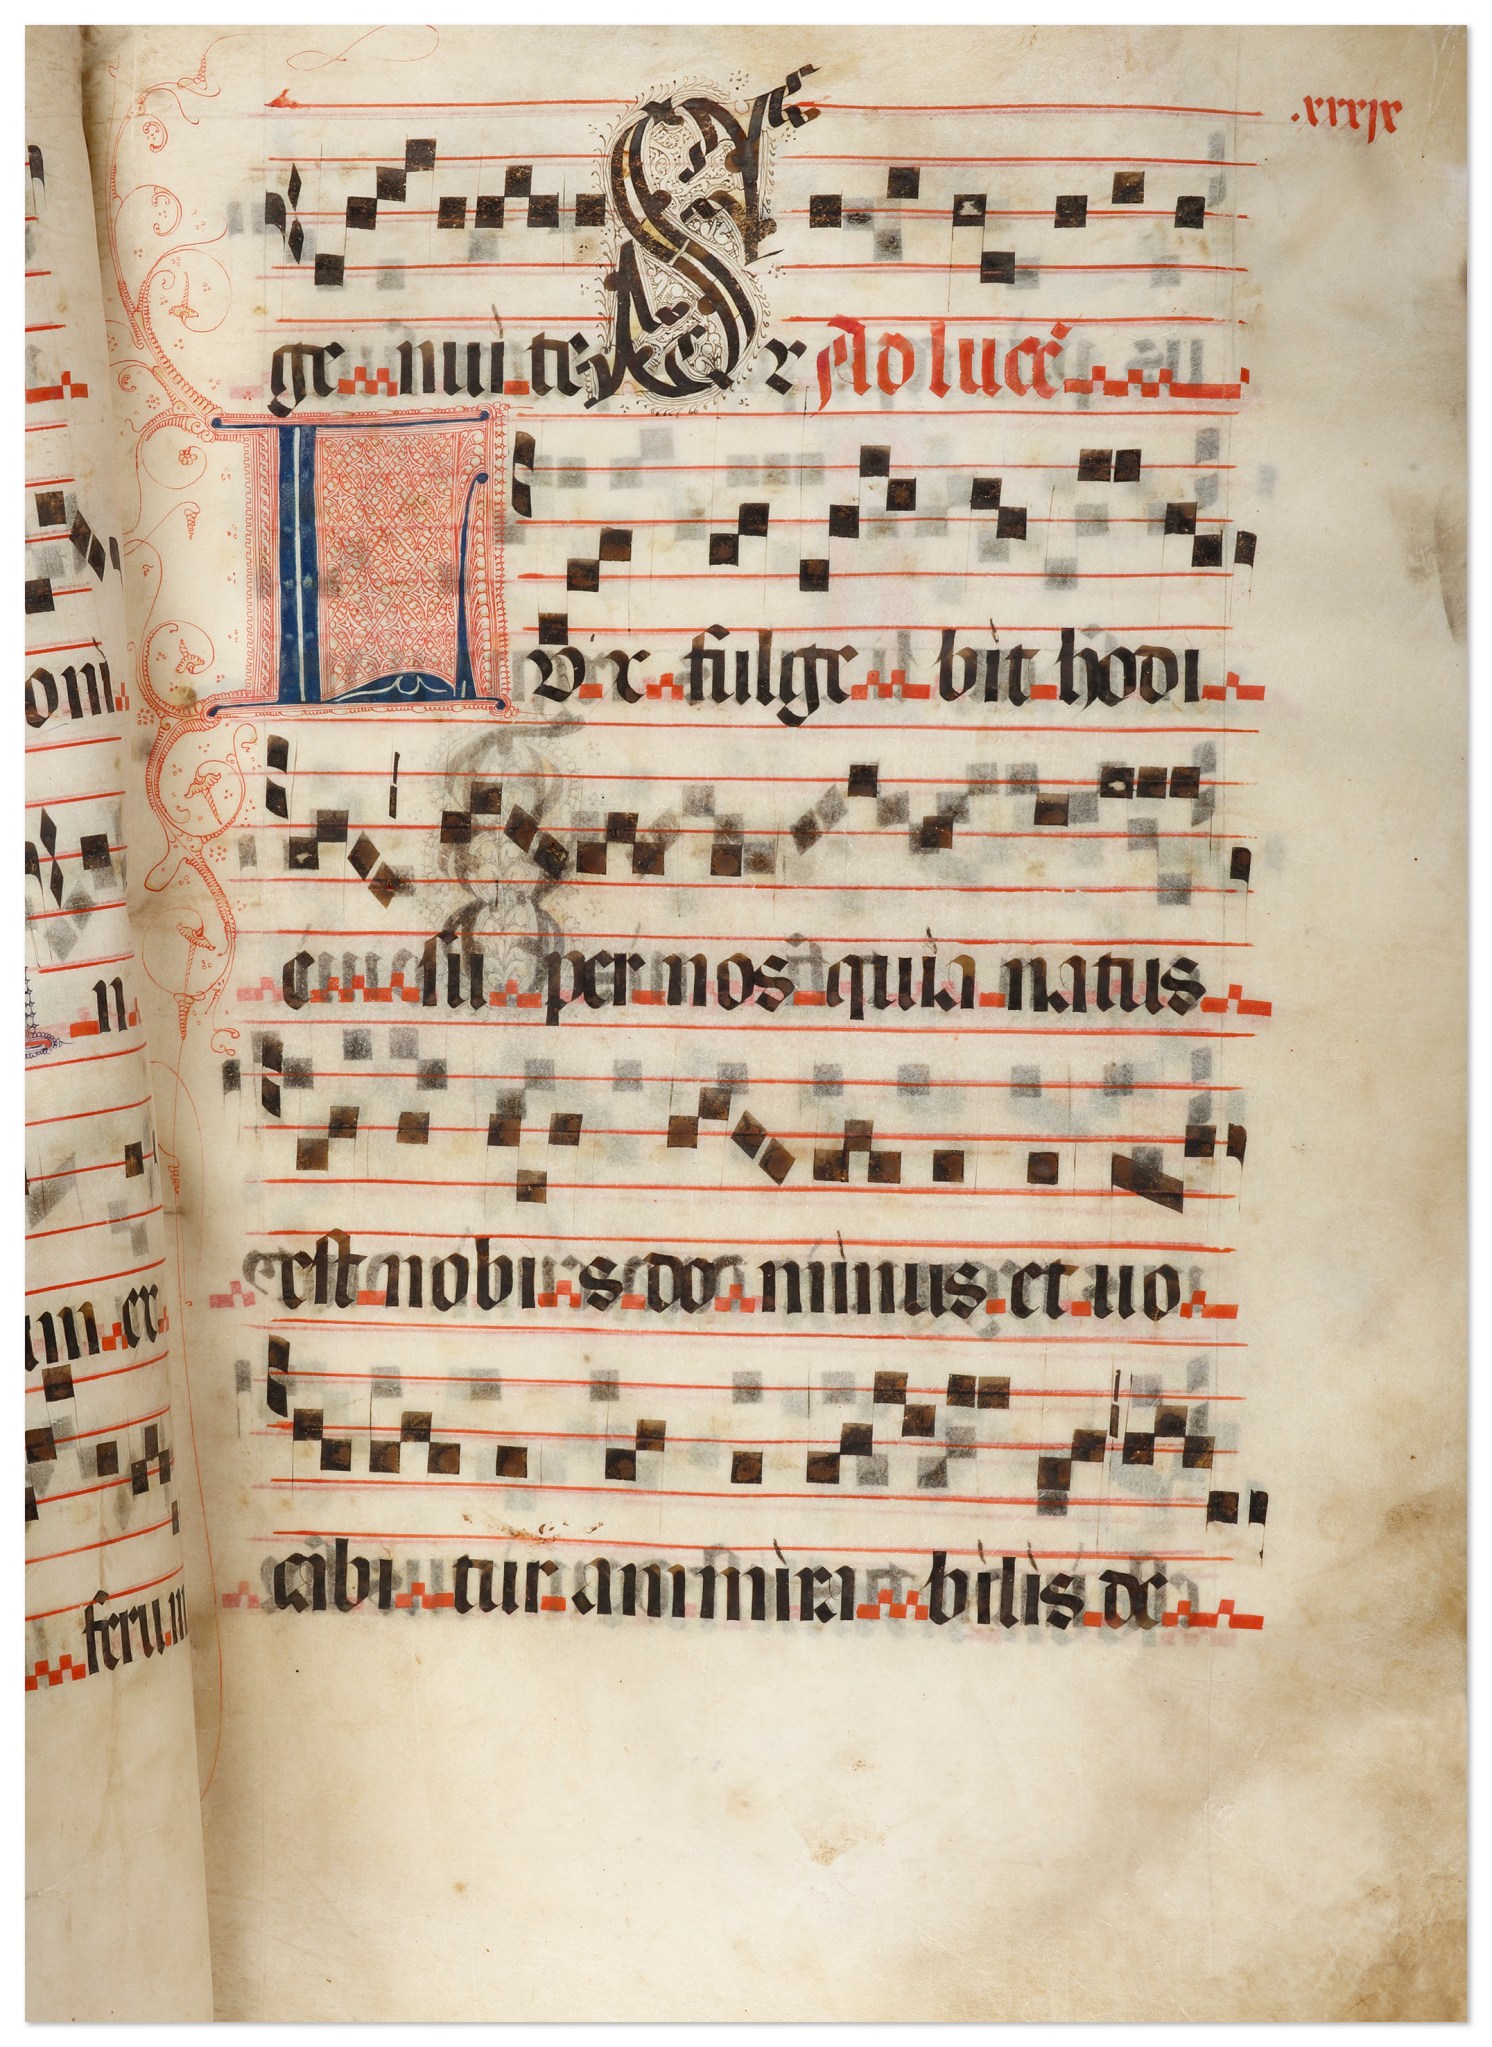 .xxxix
ge nui te S r Ad lucē
L vx fulge bit hodi
e su per nos quia natus
est nobi s do minus et uo
cabi tur ammira bilis de
omi
n
um ex
ferum